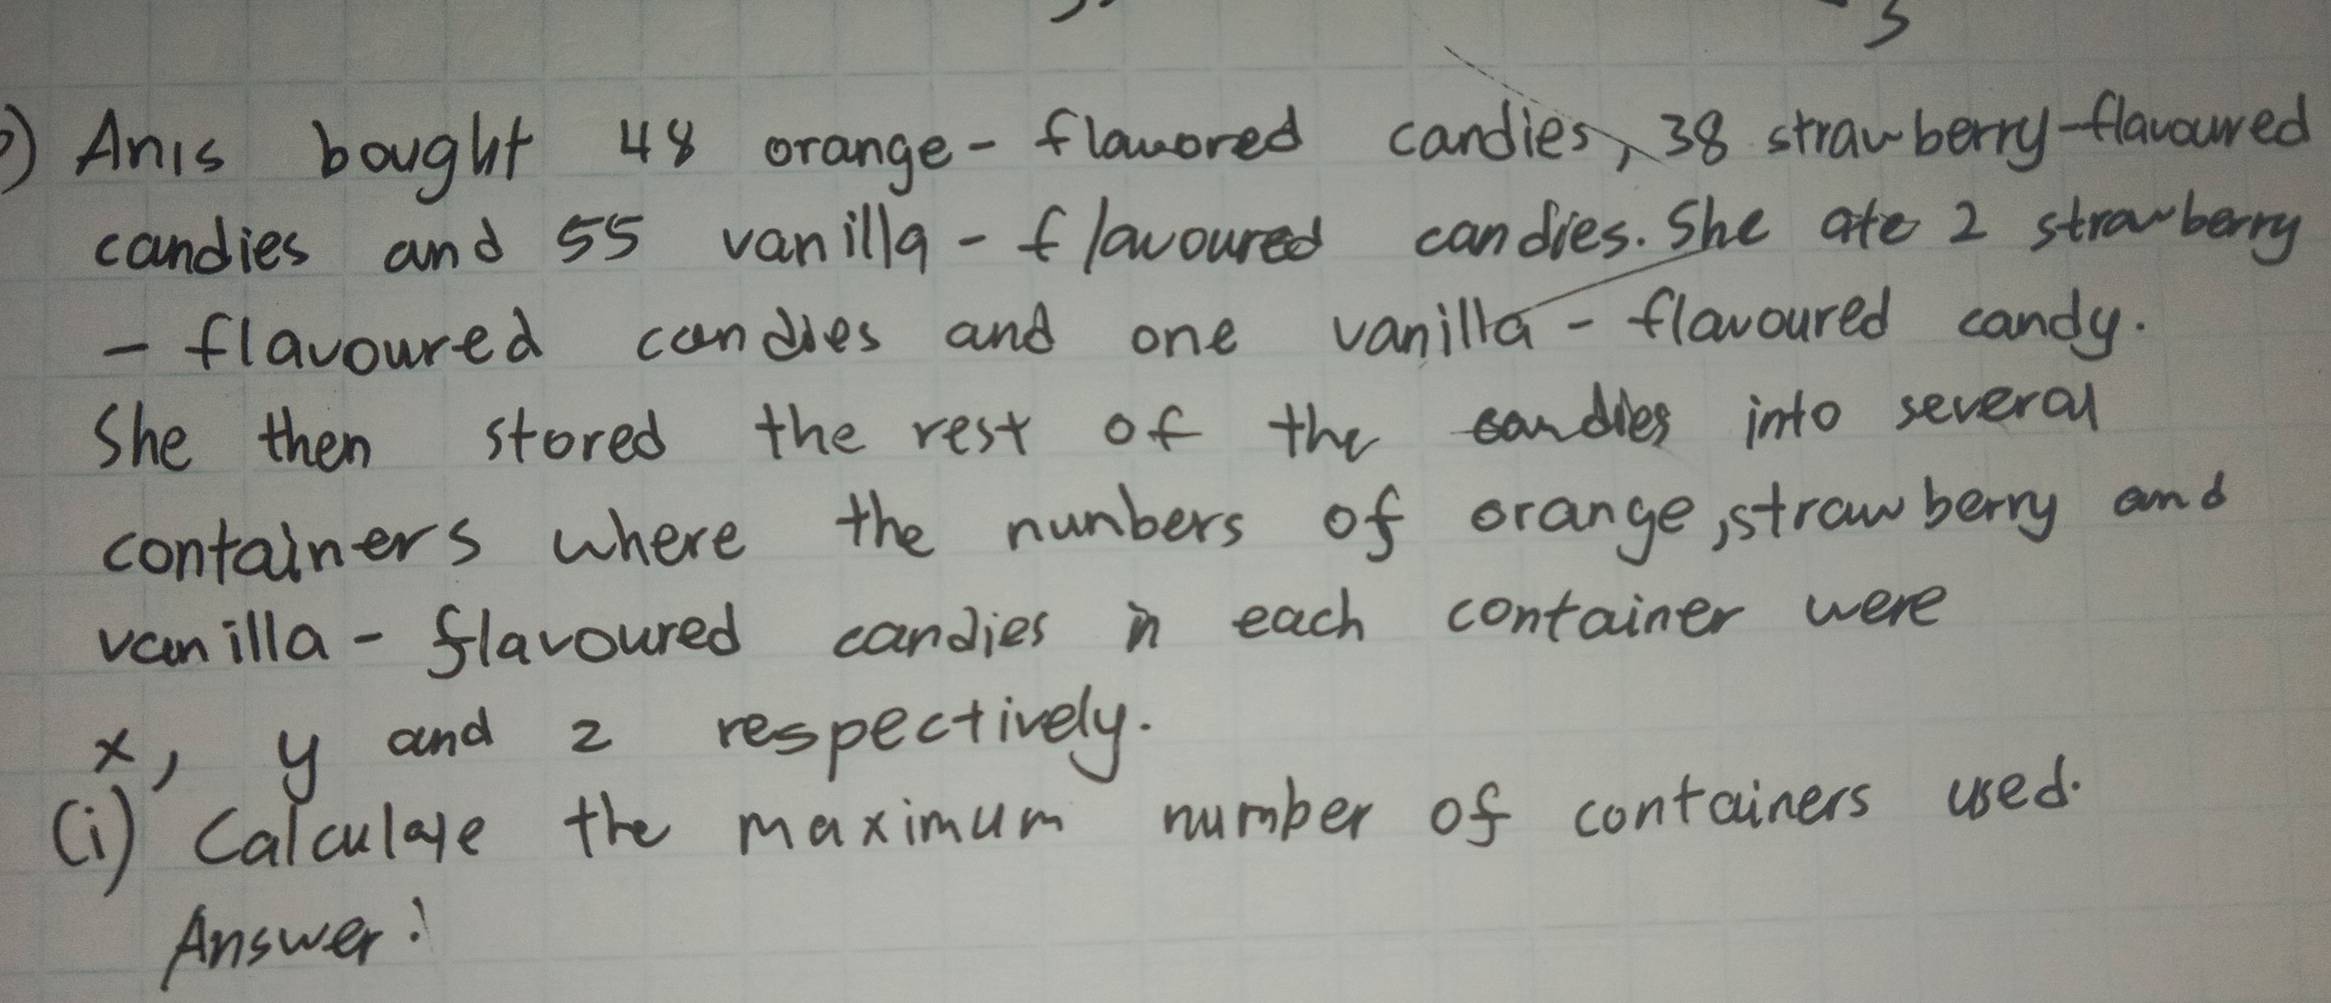 ) Anis bought 48 orange - flavored candies, 38 strawberry-flavoured
candies and 55 vanilla - flavoured candies. She ate 2 strawberry
- flavoured candies and one vanilla - flavoured candy.
She then stored the rest of the candies into several
containers where the nunbers of orange, strawberry and
vanilla - flavoured candies in each container were
x, y and z respectively.
(i) Calculate the maximum number of containers used.
Answer: